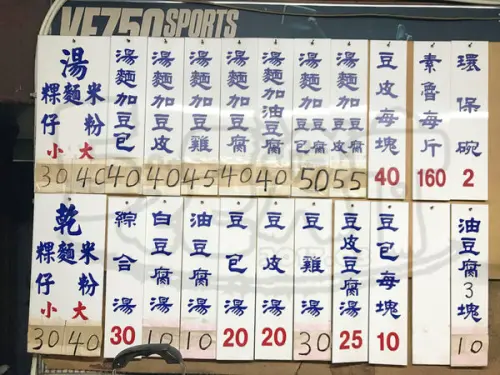 VF750 SPORTS
湯
粿仔 麵 米粉
小 大
30 40
湯麵加豆包
40
湯麵加豆皮
40
湯麵加豆雞
45
湯麵加豆腐
40
湯麵加油豆腐
40
湯麵加
50
湯麵加
55
豆皮每塊
40
素魯每斤
160
環保碗
2
乾
粿仔 麵 米粉
小 大
30 40
綜合湯
30
白豆腐湯
10
油豆腐湯
10
豆包湯
20
豆皮湯
20
豆雞湯
30
豆皮豆腐湯
25
豆包每塊
10
油豆腐3塊
10